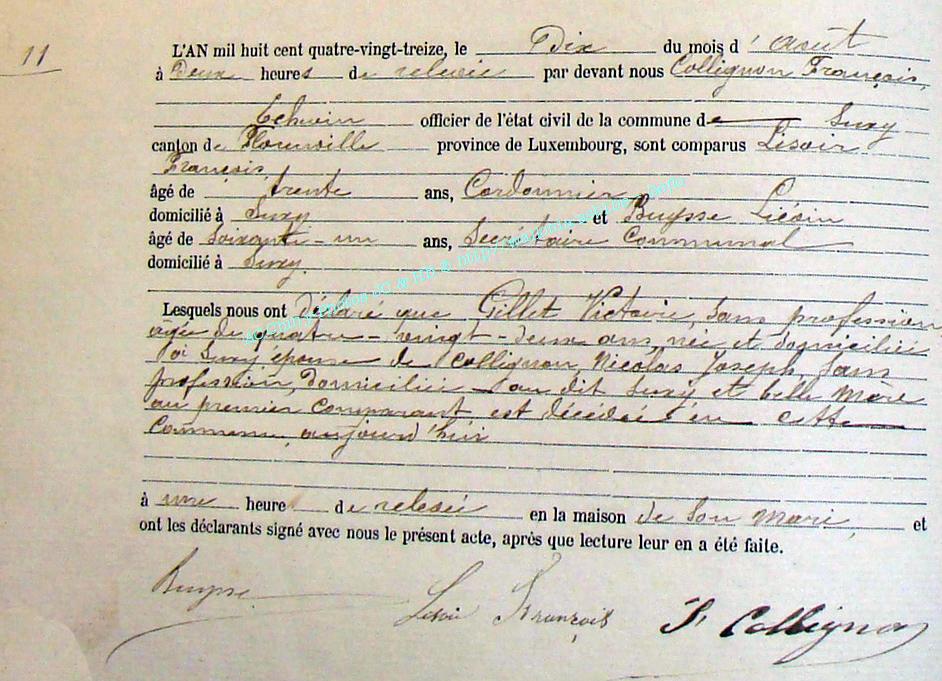 11
L'AN mil huit cent quatre-vingt-treize, le Dix du mois d'août
à Deux heures de relevée par devant nous Collignon François,
Echevin officier de l'état civil de la commune de Suxy
canton de Florenville province de Luxembourg, sont comparus Lisoir
François,
âgé de trente ans, Cordonnier
domicilié à Suxy et Buysse Liévin
âgé de Soixante-un ans, Secrétaire Communal
domicilié à Suxy.
Lesquels nous ont déclaré que Gillet Victoire, sans profession
agée de quatre-vingt-deux ans, née et domiciliée
à Suxy épouse de Collignon, Nicolas Joseph, sans
profession, domicilié au dit Suxy et belle Mère
au premier comparant est décédée en cette
Commune, aujourd'hui
à une heure de relevée en la maison de son mari, et
ont les déclarants signé avec nous le présent acte, après que lecture leur en a été faite.
Buysse Lisoir François F. Collignon